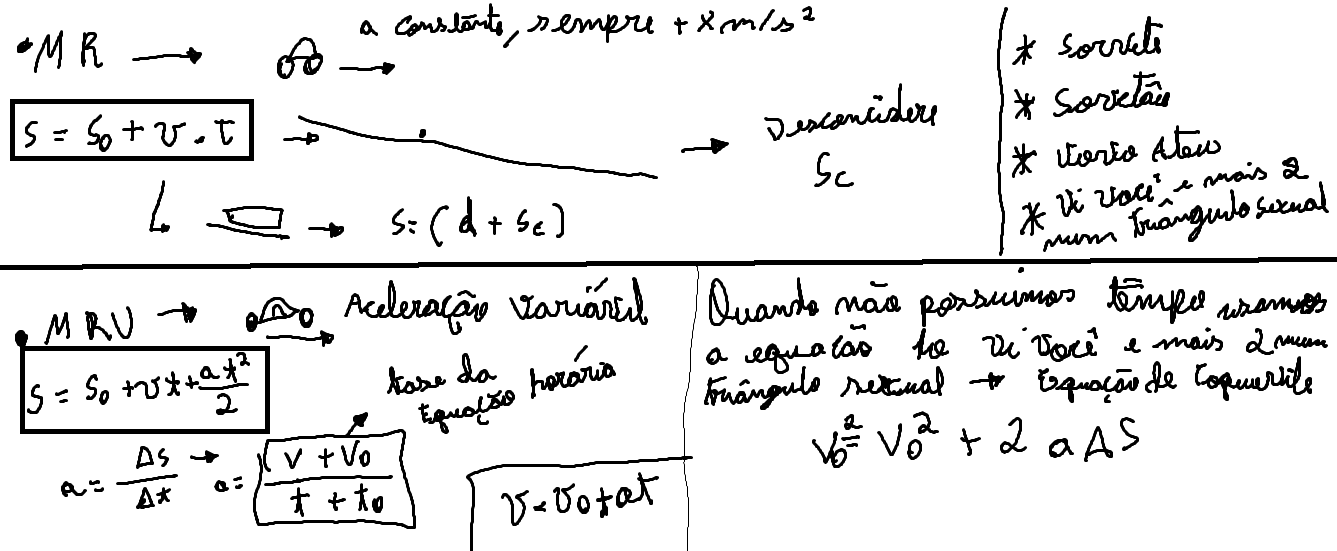 •MR → a constante, sempre + x m/s²
S = S₀ + v . t → → Desconcidere
Sc
↳ → S = (d + Sc)
* Sorvete
* Sorvetão
* Vovio Ateu
* Vi você e mais 2
num triângulo sexual
• MRV → Aceleração variável
S = S₀ + vt + at²/2
base da
Equação horária
a = ΔS/Δt → a = (v + V₀)/(t + t₀)
v = v₀ + at
Quando não possuimos tempo usamos
a equação do Vi Você e mais 2 num
triângulo sexual → Equação de
V₀² = V₀² + 2 a Δ S